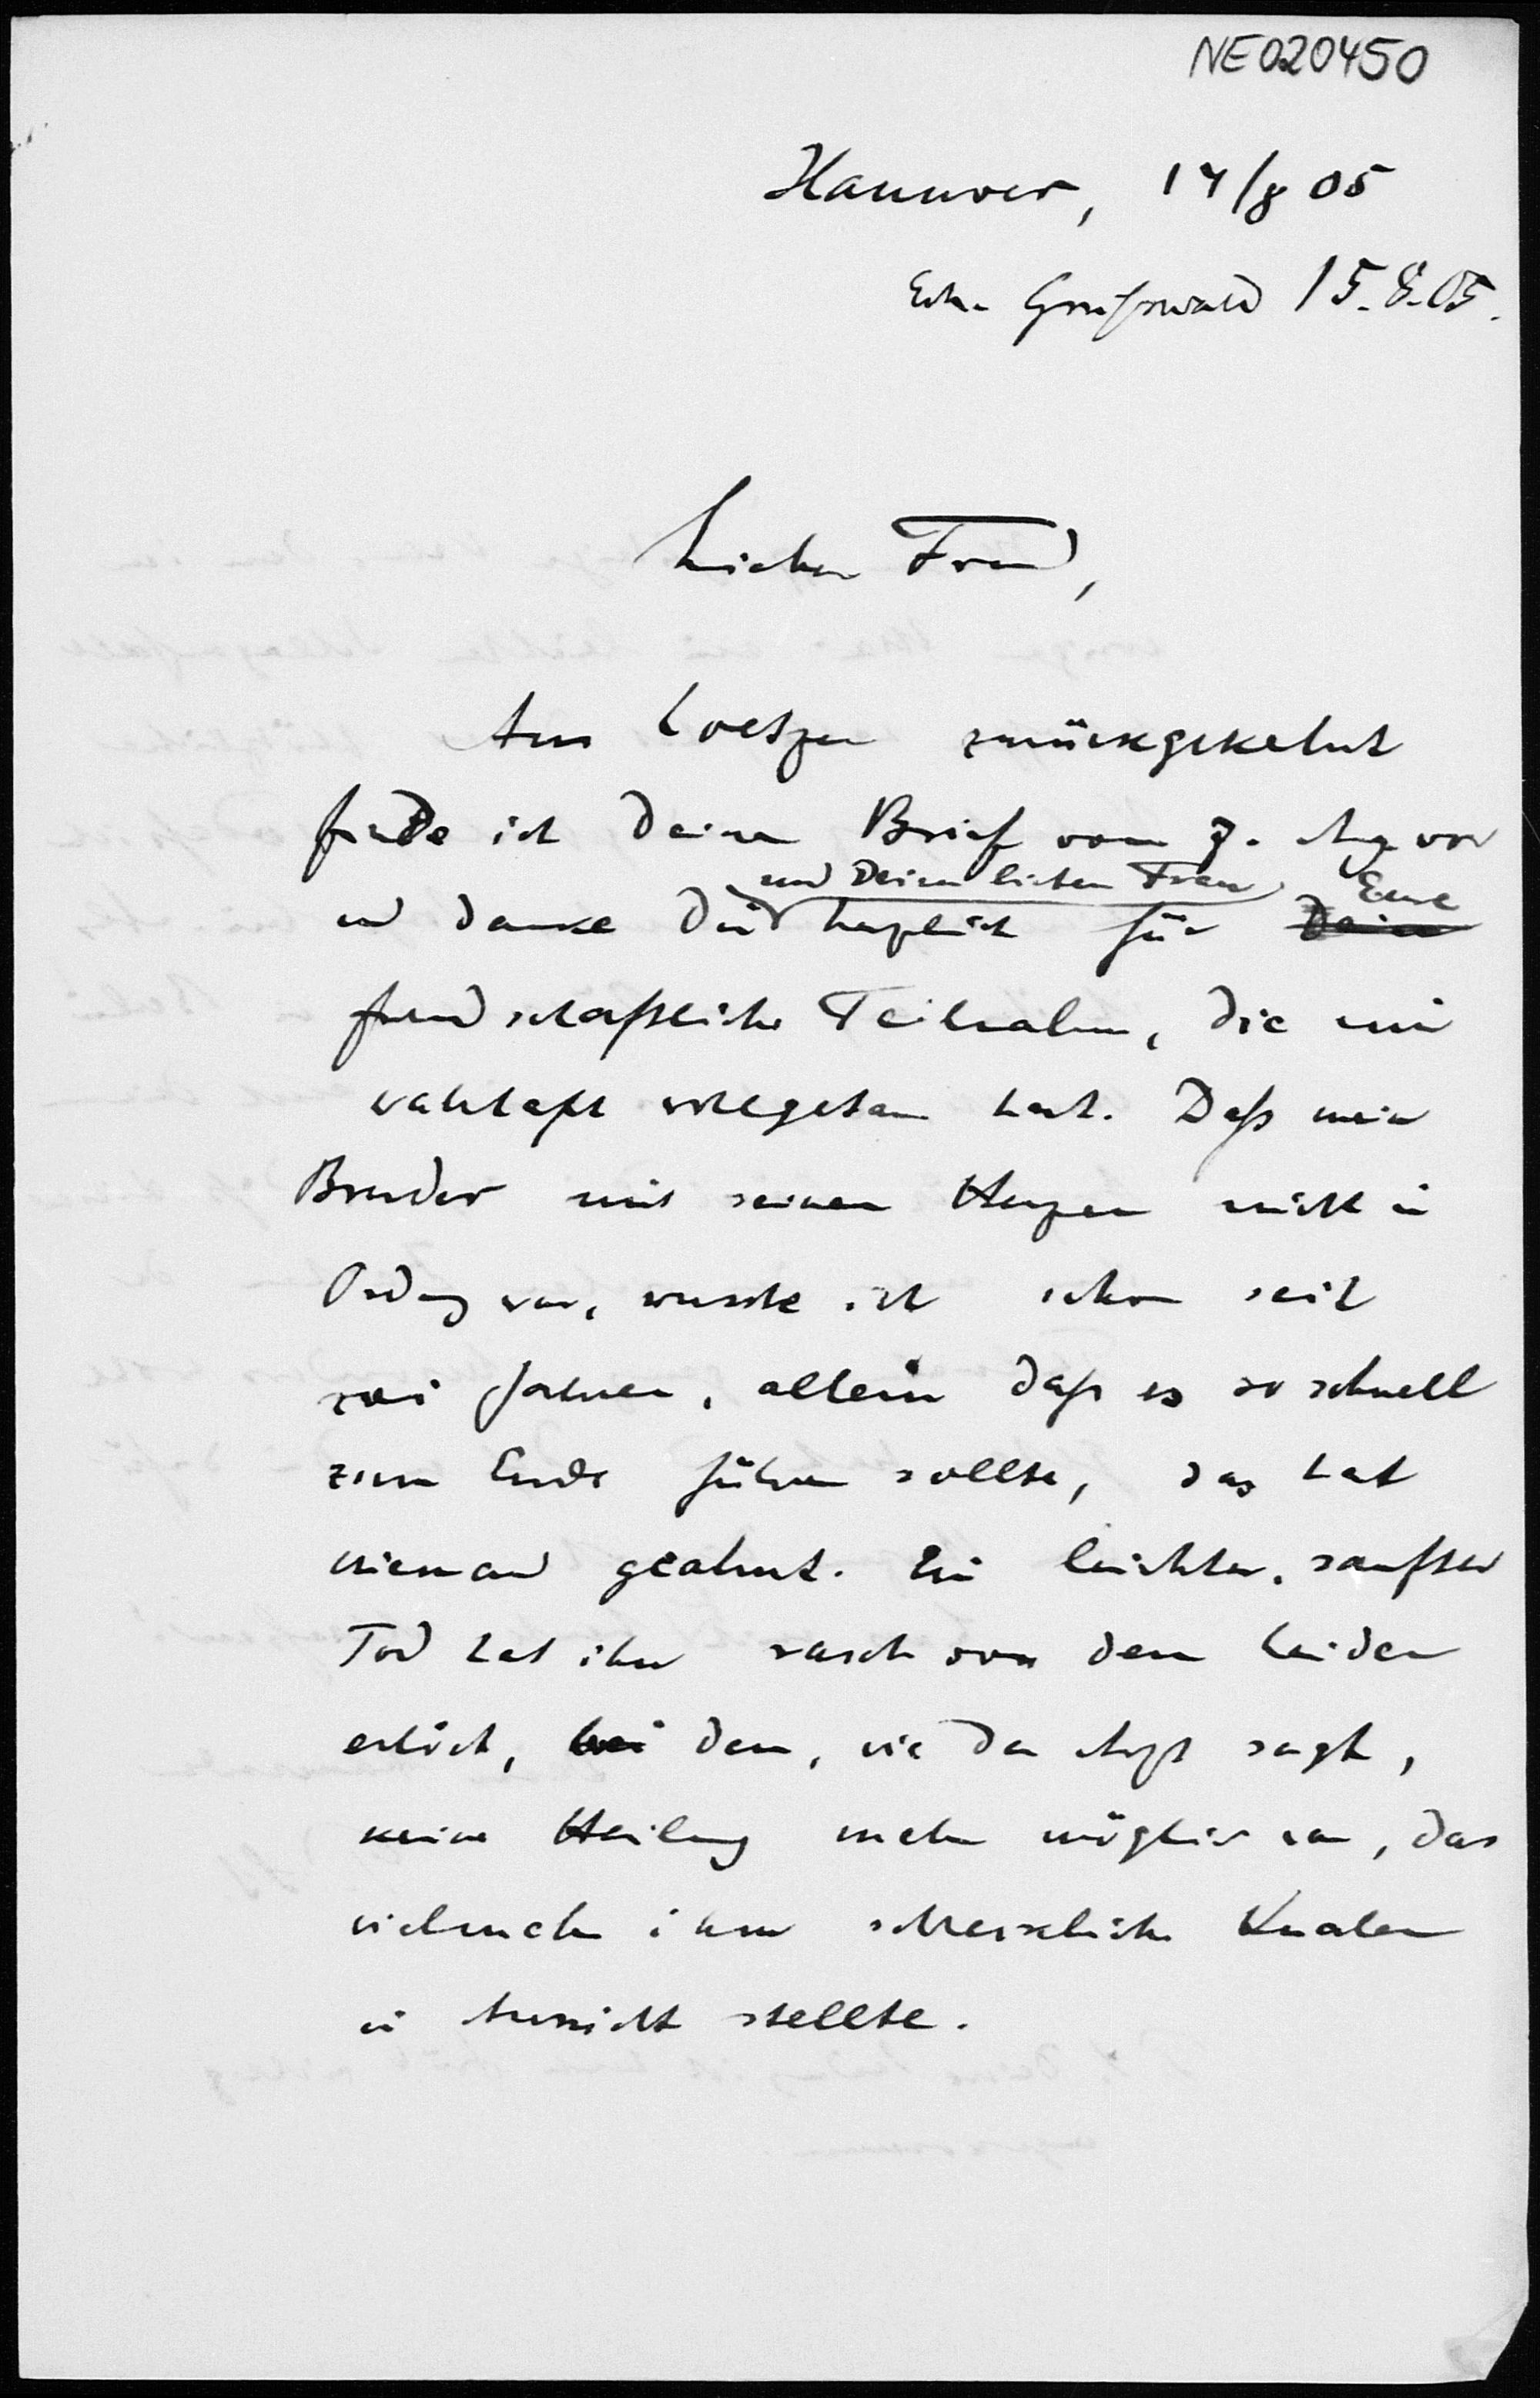 NE020450
Hannover, 14/8 05
Erh. Greifswald 15.8.05.
Lieber Freund,
Aus Loetzen zurückgekehrt
finde ich Deinen Brief vom 7. Aug vor
und danke Dir und Deiner lieben Frau herzlich für Deine Eure
freundschaftliche Teilnahme, die mir
wahrhaft wohlgetan hat. Daß mein
Bruder mit seinem Herzen nicht in
Ordnung war, wusste ich schon seit
zwei Jahren, allein daß es so schnell
zum Ende führen sollte, das hat
niemand geahnt. Ein leichter, sanfter
Tod hat ihn rasch von dem Leiden
erlöst, bei dem, wie der Arzt sagt,
keine Heilung mehr möglich war, das
vielmehr ihm schreckliche Qualen
in Aussicht stellte.